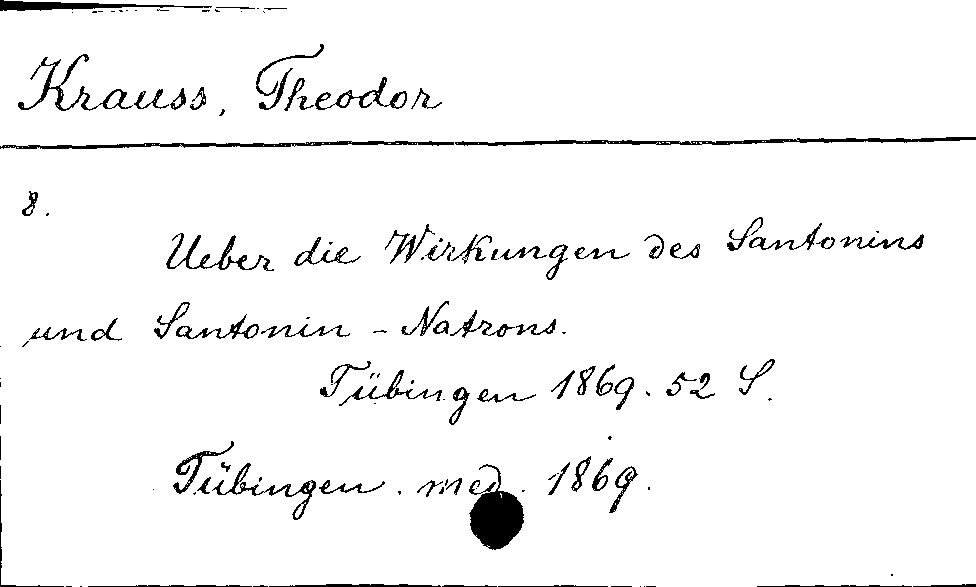 Krauss, Theodor
8.
Ueber die Wirkungen des Santonins
und Santonin - Natrons.
Tübingen 1869. 52 S.
Tübingen. med. 1869.